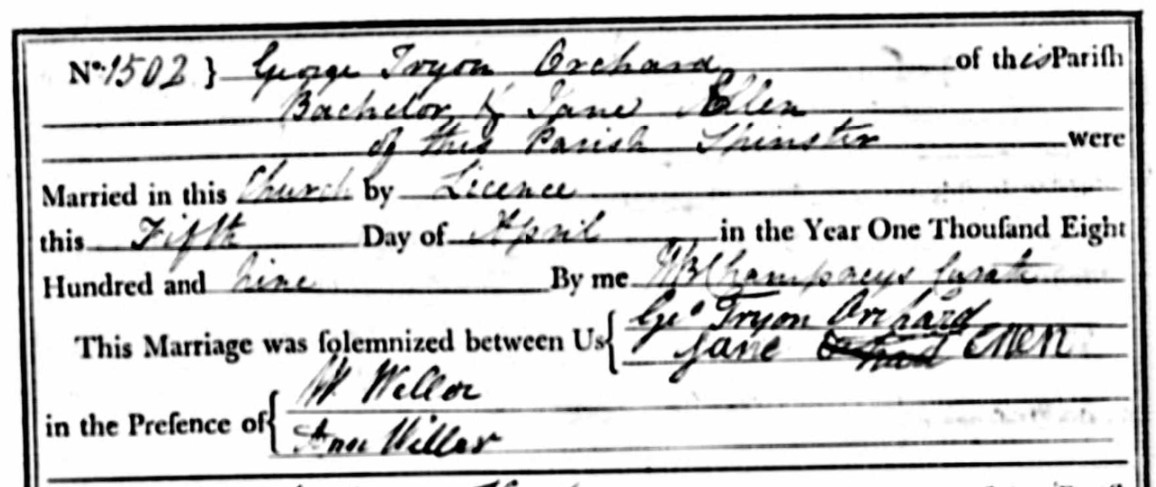 Nº 1502 } George Tryon Orchard of this Pariſh
Bachelor & Jane Allen
of this Parish Spinster were
Married in this Church by Licence
this Fifth Day of April in the Year One Thouſand Eight
Hundred and nine By me WB Champneys Curate
This Marriage was ſolemnized between Us { Geo Tryon Orchard
Jane Orchard Allen
in the Preſence of { W Weller
Ann Weller